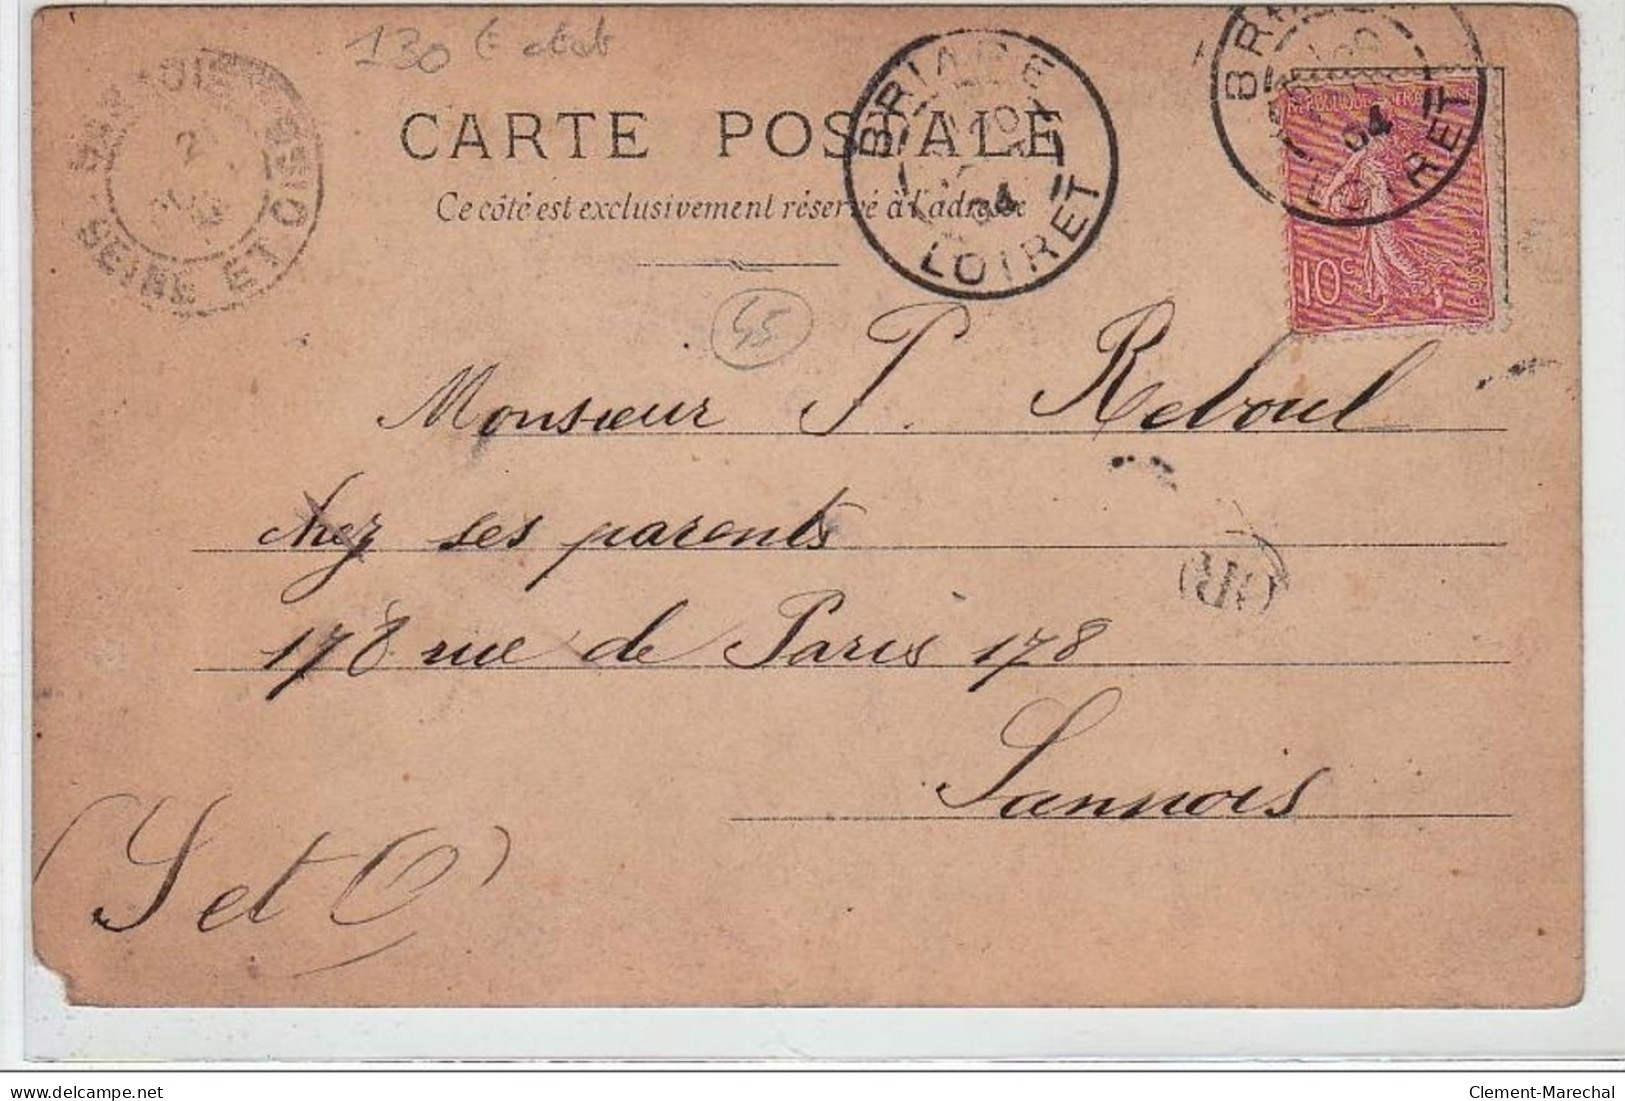 130 € état
CARTE POSTALE
Ce côté est exclusivement réservé à l'adresse
SEINE ET OISE
BRIARE
04
LOIRET
BRIARE
04
LOIRET
REPUBLIQUE FRANCAISE
10c
POSTES
45
Monsieur P. Reboul
chez ses parents
178 rue de Paris 178
Sannois
(S et O)
OR
delcampe.net
Clement-Marechal